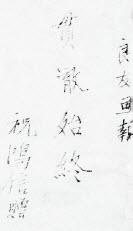 良友画報
貫澈始終
祝鴻信贈